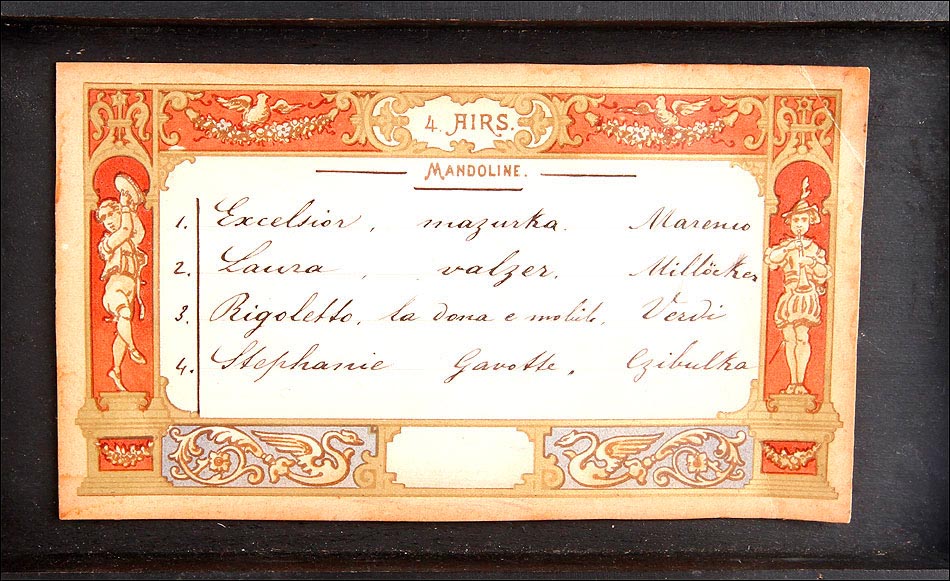 4. AIRS.
MANDOLINE.
1. Excelsior, mazurka. Marenco
2. Laura, valzer. Millöcker
3. Rigoletto, la dona e mobile. Verdi
4. Stephanie Gavotte. Czibulka